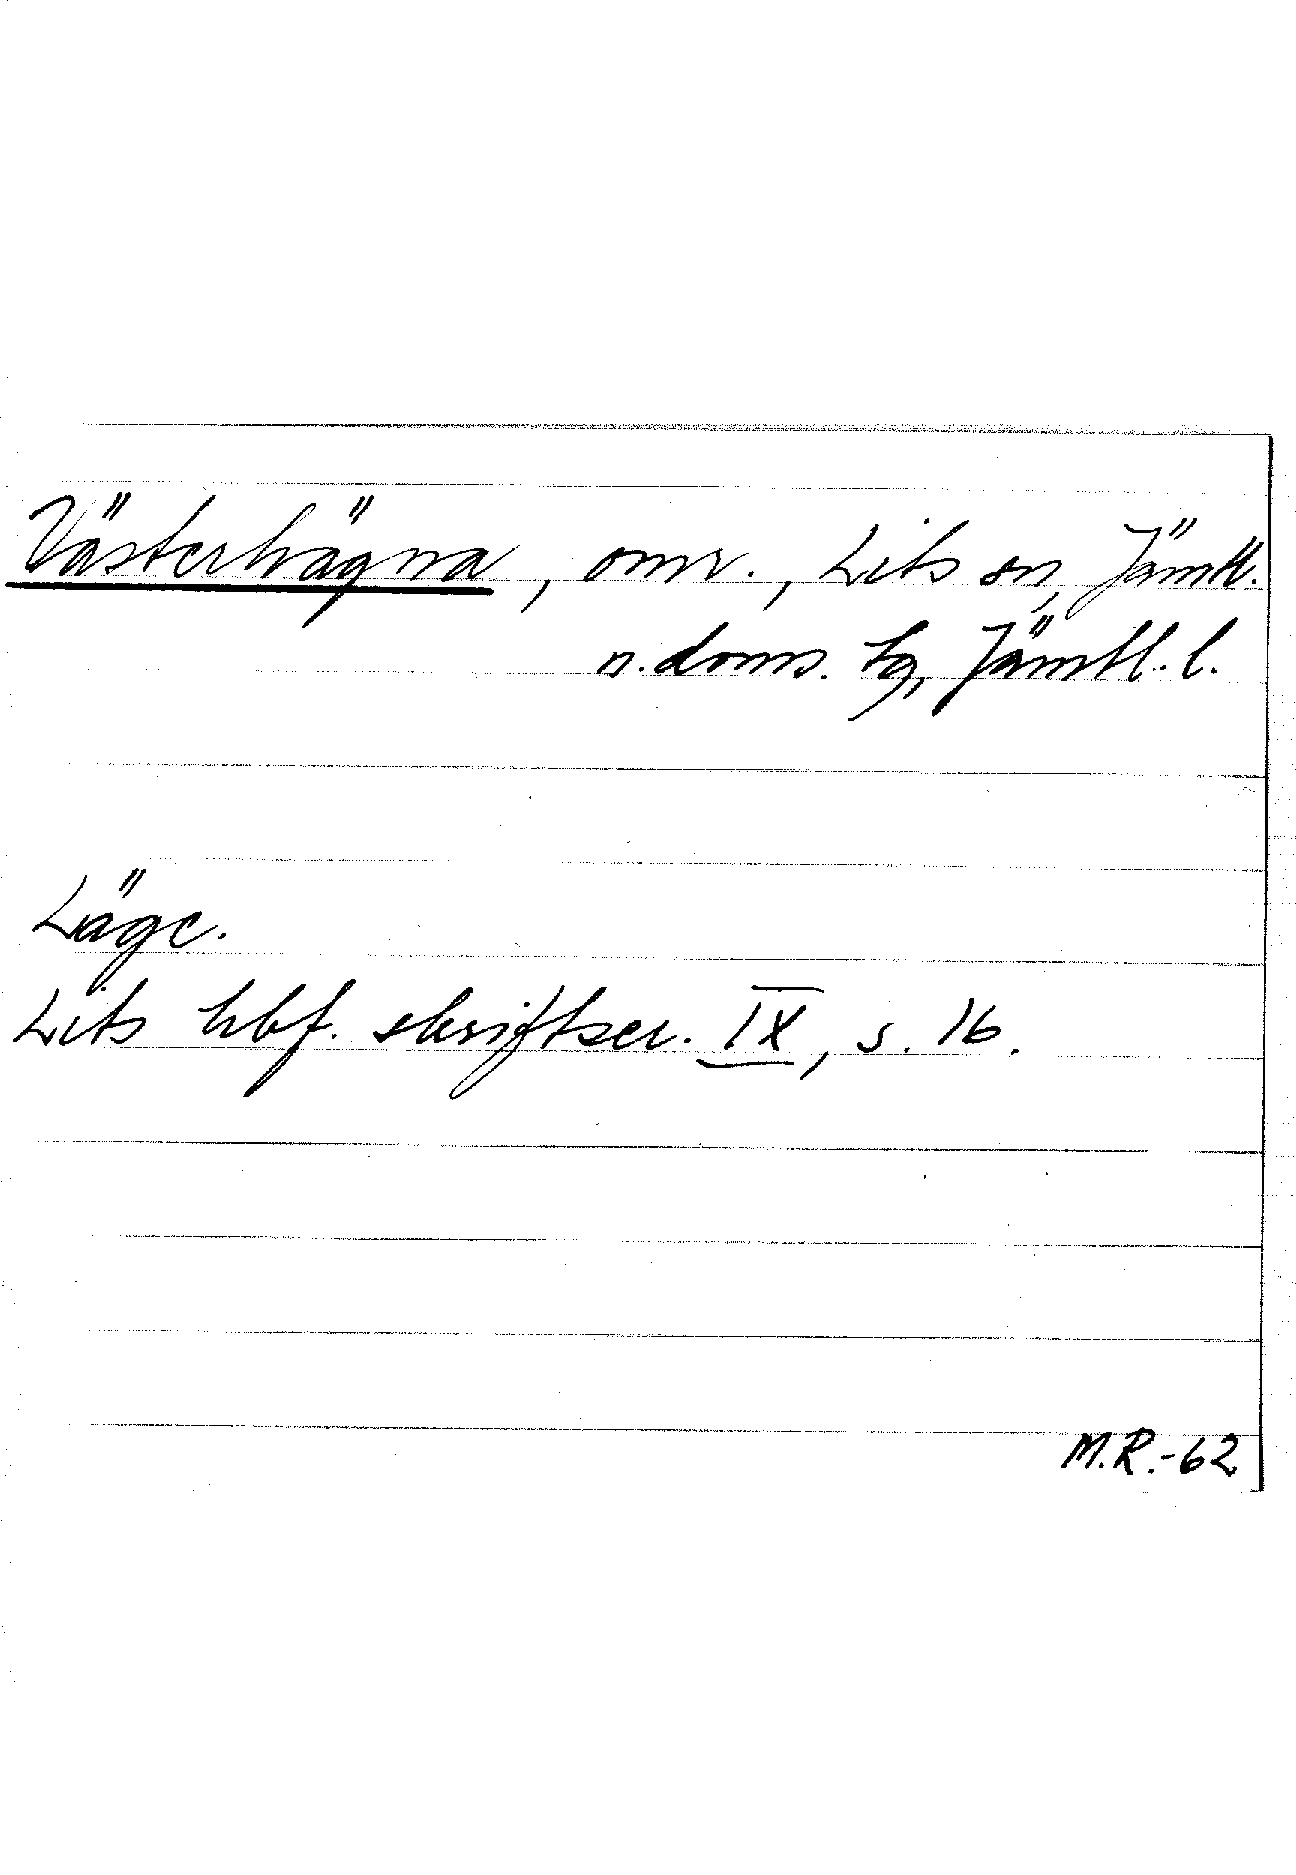 Västerhägna, omr., Lits sn, Jämtl.
n. doms. tg, Jämtl. l.
Läge.
Lits hbf. skriftser. IX, s. 16.
M.R.-62